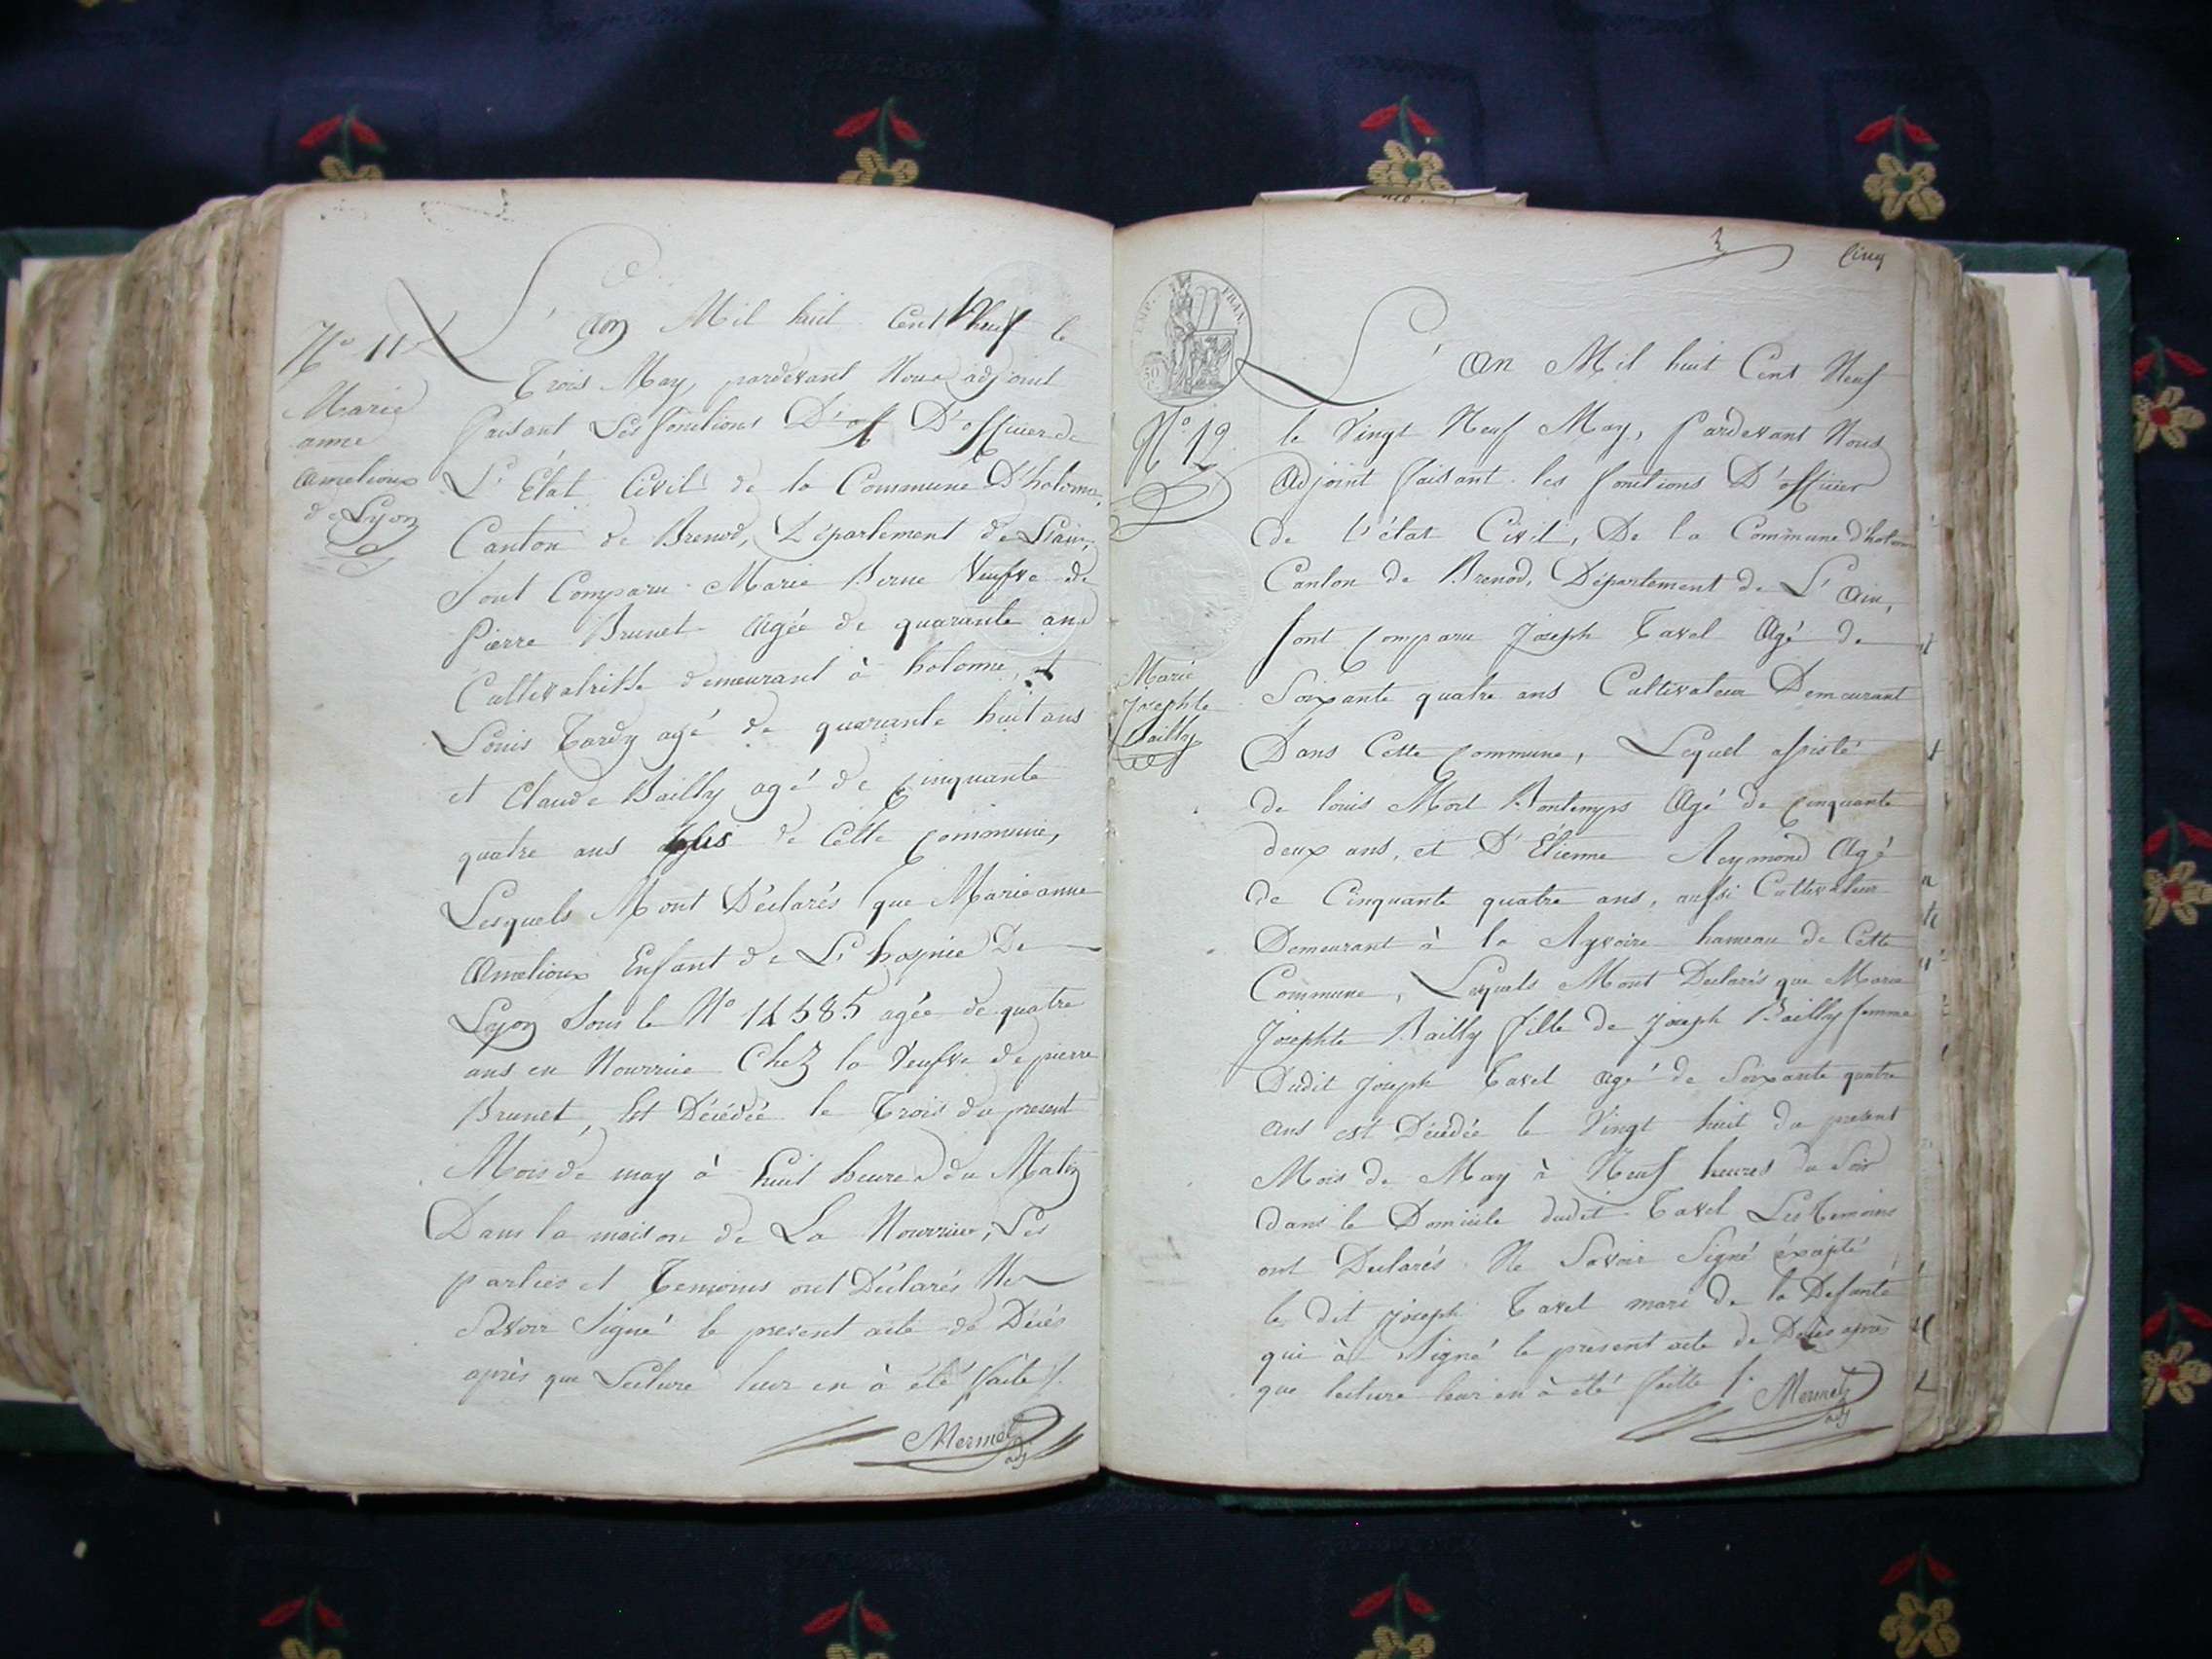 N° 11
Marie
anne
amelioux
de Lyon
L'an Mil huit Cent Neuf le
Trois May, pardevant Nous adjoint
faisant Les fonctions D'of D'officier de
L'Etat Civil de la Commune D'hotonne,
Canton de Brenod, Département de L'ain,
Sont Comparu Marie Berne Veufve de
Pierre Brunet Agée de quarante ans
Cultivatrisse demeurant à hotonne, et
Louis Tardy agé de quarante huit ans
et Claude Bailly agé de Cinquante
quatre ans de Cette Commune,
Lesquels Mont Déclarés que Marie anne
Amelioux Enfant de L'hospice De
Lyon Sous le N° 14585 agée de quatre
ans en Nourrice Chez la Veufve de pierre
Brunet, Est Décédée le Trois du present
Mois de may à huit heures du Matin
Dans la maison de La Nourrice, Les
parties et Temoins ont Déclarés Ne
Savoir Signé le present acte de Décés
après que Lecture leur en à été faite /.
Mermet
adj
Cinq
EMP. FRAN.
L'An Mil huit Cent Neuf
N° 12
le Vingt Neuf May, Pardevant Nous
Adjoint faisant les fonctions D'officier
de l'état Civil, De la Commune d'hotonne
Canton de Brenod, Département de L'Ain,
Sont Comparu Joseph Tavel Agé de
Marie
Josephte
Bailly
Soixante quatre ans Cultivateur Demeurant
Dans Cette Commune, Lequel assisté
de louis Mort Bontemps Agé de Cinquante
deux ans, et D'Etienne Reymond Agé
de Cinquante quatre ans, aussi Cultivateur
Demeurant à la Ayvoire hameau de Cette
Commune, Lesquels Mont Declarés que Marie
Josephte Bailly fille de Joseph Bailly femme
Dudit Joseph Tavel agé de Soixante quatre
Ans est Décédée le Vingt huit du present
Mois de May à Neuf heures du Soir
dans le Domicile dudit Tavel Les Temoins
ont Declarés Ne Savoir Signé éxcepté
le dit Joseph Tavel mari de la Defunte
qui à Signé le present acte de Décès après
que lecture leur en à été faitte /.
Mermet
adj